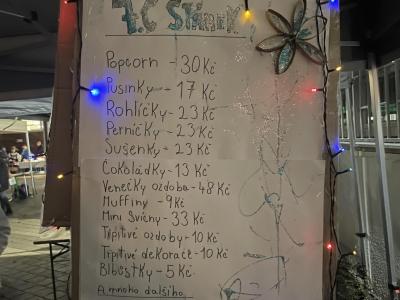 7.C Stánek
Popcorn - 30 Kč
Pusinky - 17 Kč
Rohlíčky - 23 Kč
Perníčky - 23 Kč
Sušenky - 23 Kč
Čokoládky - 13 Kč
Venečky ozdoba - 48 Kč
Muffiny - 9 Kč
Mini Svícny - 33 Kč
Třpitivé ozdoby - 10 Kč
Třpitivé dekorace - 10 Kč
Blbostky - 5 Kč
A mnoho dalšího